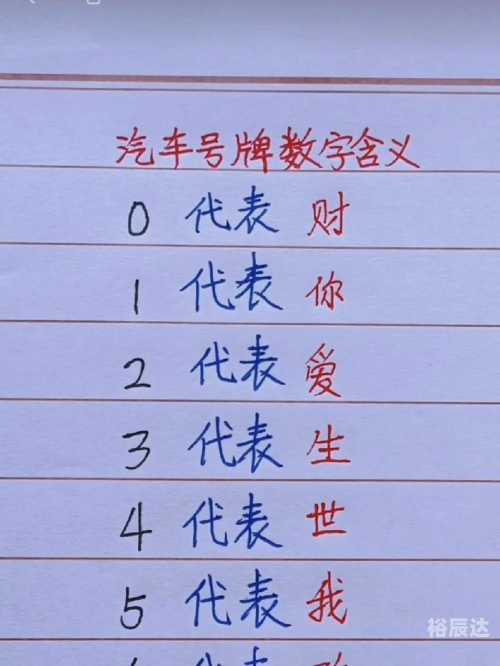 汽车号牌数字含义
0 代表 财
1 代表 你
2 代表 爱
3 代表 生
4 代表 世
5 代表 我
代表
裕辰达